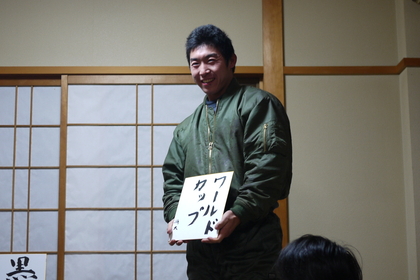 ワールド
カップ
黒